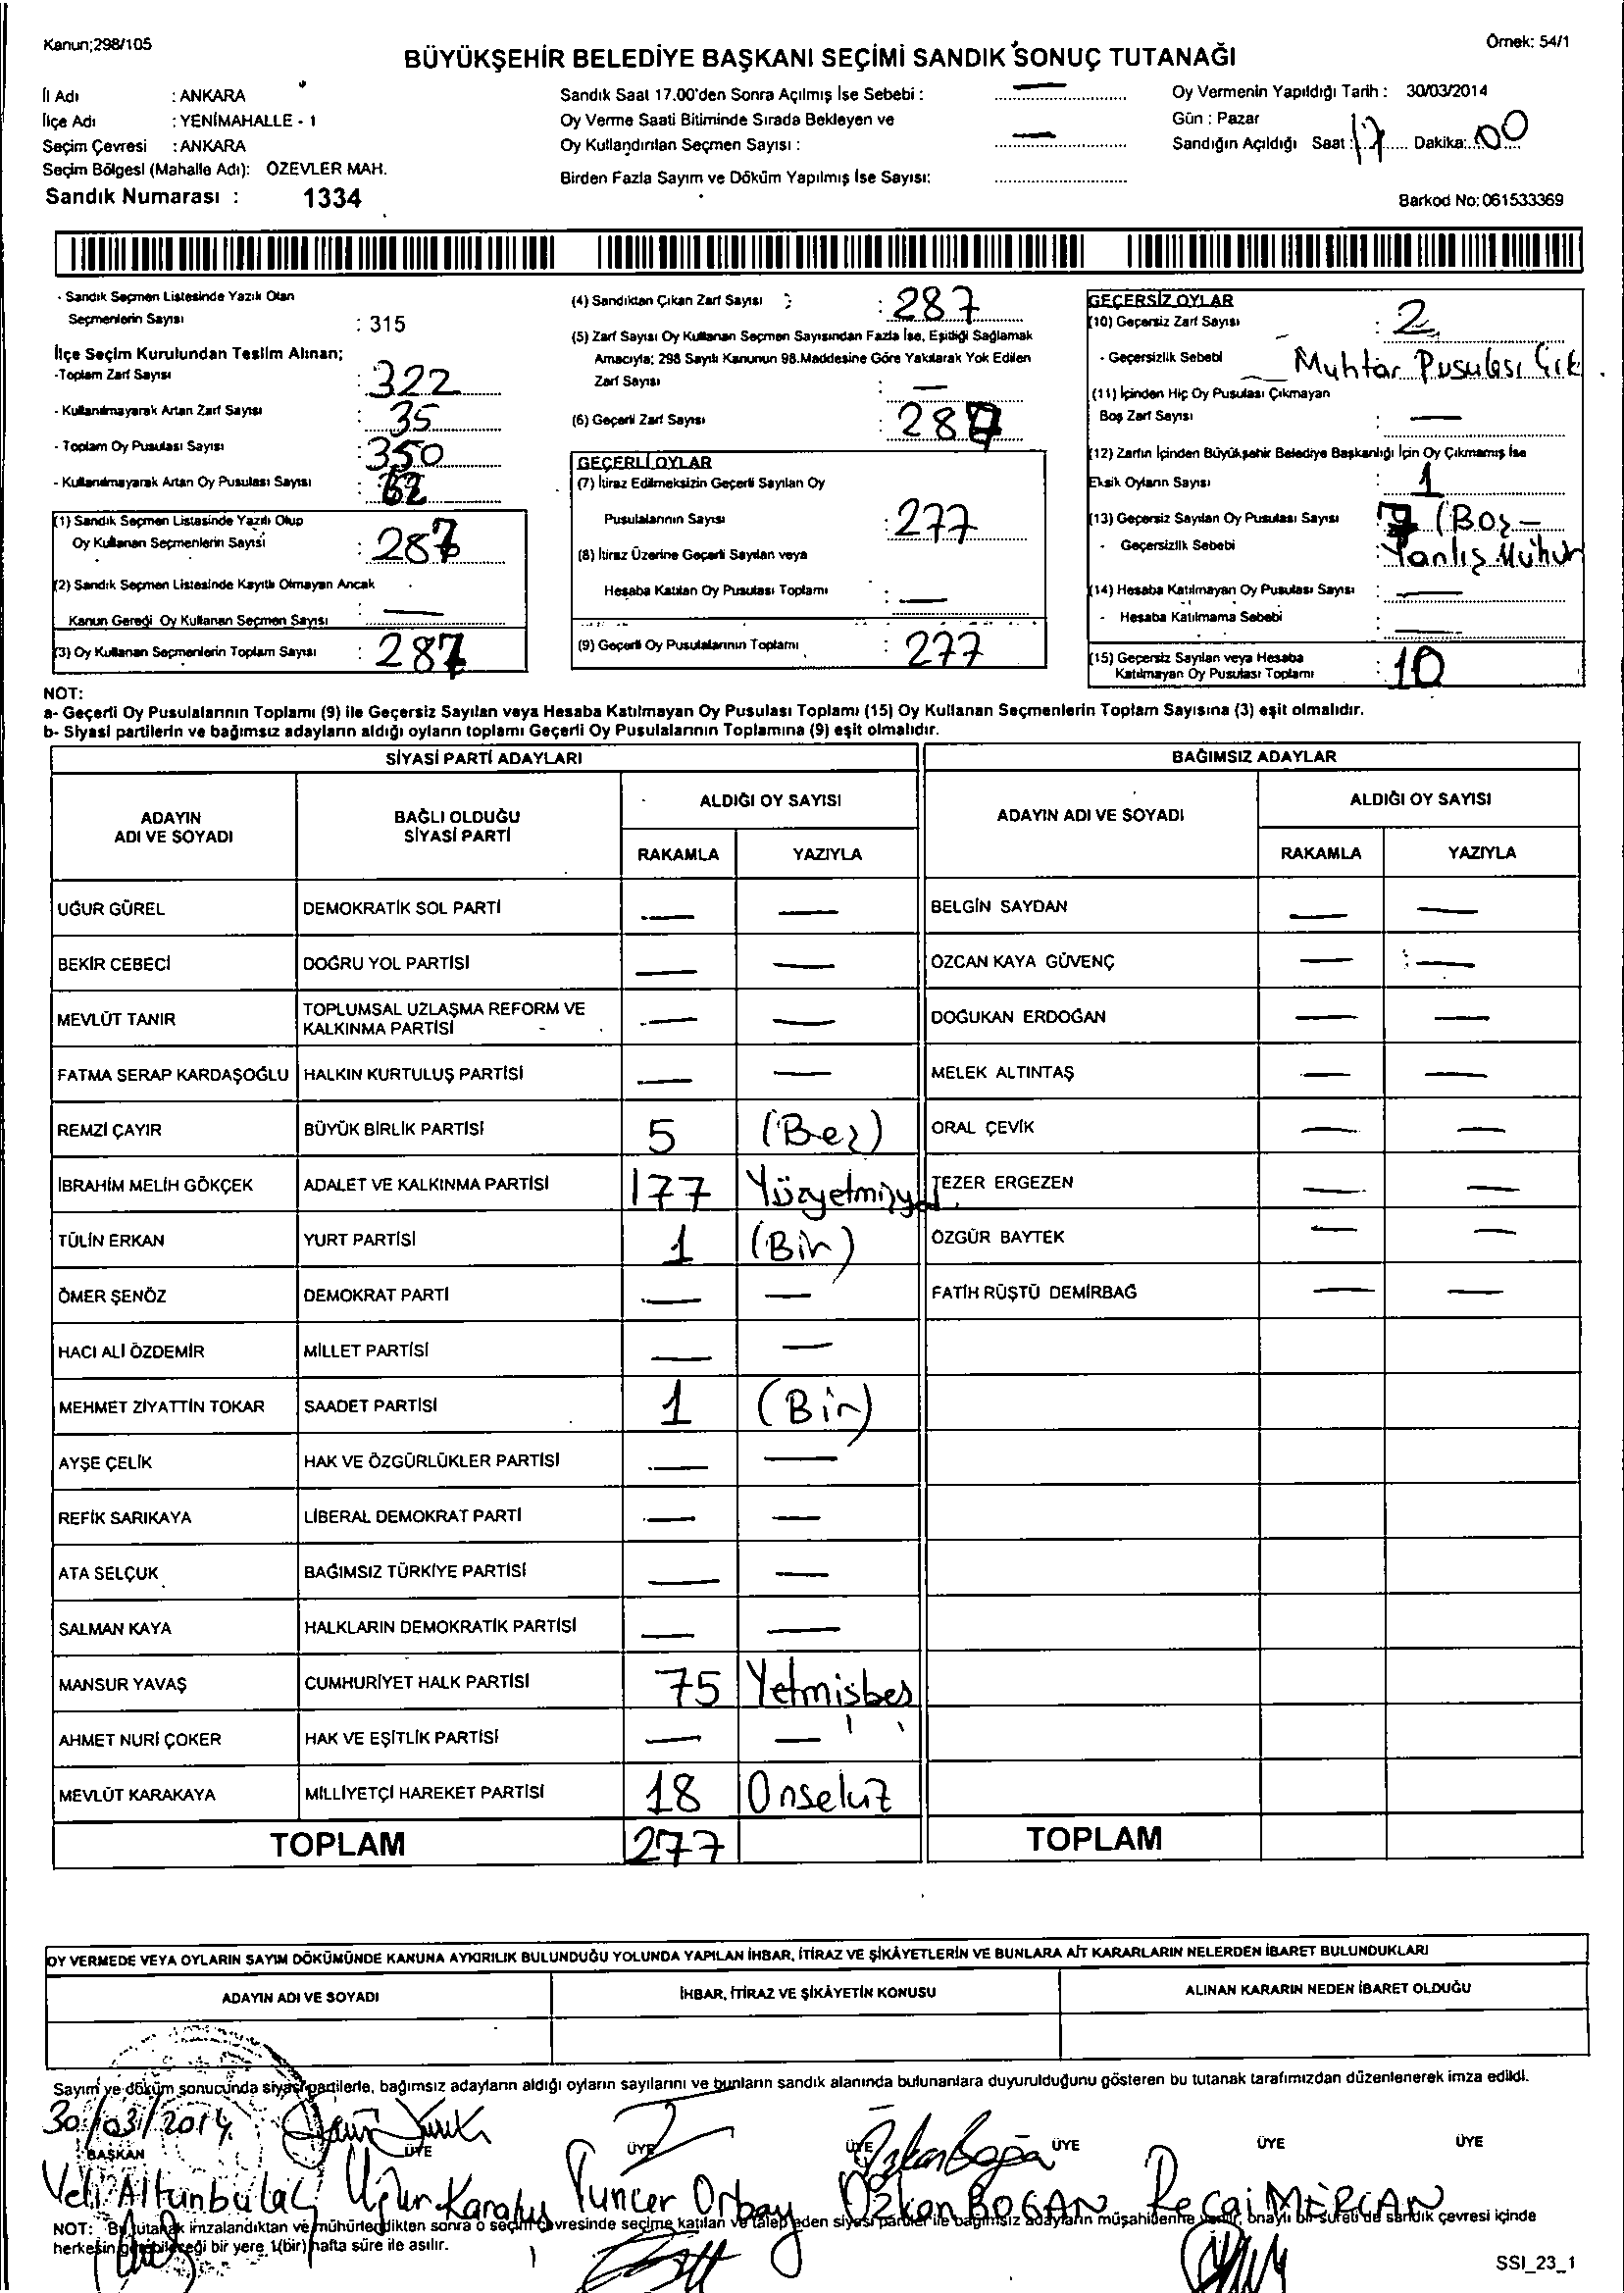 Kanun;298/105
Örnek: 54/1
BÜYÜKŞEHİR BELEDİYE BAŞKANI SEÇİMİ SANDIK SONUÇ TUTANAĞI
İl Adı : ANKARA
İlçe Adı : YENİMAHALLE - 1
Seçim Çevresi : ANKARA
Seçim Bölgesi (Mahalle Adı): ÖZEVLER MAH.
Sandık Numarası : 1334
Sandık Saat 17.00'den Sonra Açılmış İse Sebebi : —
Oy Verme Saati Bitiminde Sırada Bekleyen ve
Oy Kullandırılan Seçmen Sayısı : —
Birden Fazla Sayım ve Döküm Yapılmış İse Sayısı:
Oy Vermenin Yapıldığı Tarih : 30/03/2014
Gün : Pazar
Sandığın Açıldığı Saat : 17 Dakika: 00
Barkod No: 061533369
- Sandık Seçmen Listesinde Yazılı Olan
Seçmenlerin Sayısı : 315
İlçe Seçim Kurulundan Teslim Alınan;
-Toplam Zarf Sayısı : 322
- Kullanılmayarak Artan Zarf Sayısı : 35
- Toplam Oy Pusulası Sayısı : 350
- Kullanılmayarak Artan Oy Pusulası Sayısı :
(1) Sandık Seçmen Listesinde Yazılı Olup
Oy Kullanan Seçmenlerin Sayısı : 287
(2) Sandık Seçmen Listesinde Kayıtlı Olmayan Ancak
Kanun Gereği Oy Kullanan Seçmen Sayısı : —
(3) Oy Kullanan Seçmenlerin Toplam Sayısı : 287
(4) Sandıktan Çıkan Zarf Sayısı : 287
(5) Zarf Sayısı Oy Kullanan Seçmen Sayısından Fazla İse, Eşitliği Sağlamak
Amacıyla; 298 Sayılı Kanunun 98.Maddesine Göre Yakılarak Yok Edilen
Zarf Sayısı : —
(6) Geçerli Zarf Sayısı :
GEÇERLİ OYLAR
(7) İtiraz Edilmeksizin Geçerli Sayılan Oy
Pusulalarının Sayısı : 277
(8) İtiraz Üzerine Geçerli Sayılan veya
Hesaba Katılan Oy Pusulası Toplamı : —
(9) Geçerli Oy Pusulalarının Toplamı : 277
GEÇERSİZ OYLAR
(10) Geçersiz Zarf Sayısı : 2
- Geçersizlik Sebebi Muhtar Pusulası
(11) İçinden Hiç Oy Pusulası Çıkmayan
Boş Zarf Sayısı : —
(12) Zarfın İçinden Büyükşehir Belediye Başkanlığı İçin Oy Çıkmamış İse
Eksik Oyların Sayısı : 1
(13) Geçersiz Sayılan Oy Pusulası Sayısı : 7 (Boş-
- Geçersizlik Sebebi : Yanlış Mühür
(14) Hesaba Katılmayan Oy Pusulası Sayısı : —
- Hesaba Katılmama Sebebi : —
(15) Geçersiz Sayılan veya Hesaba
Katılmayan Oy Pusulası Toplamı : 10
NOT:
a- Geçerli Oy Pusulalarının Toplamı (9) ile Geçersiz Sayılan veya Hesaba Katılmayan Oy Pusulası Toplamı (15) Oy Kullanan Seçmenlerin Toplam Sayısına (3) eşit olmalıdır.
b- Siyasi partilerin ve bağımsız adayların aldığı oyların toplamı Geçerli Oy Pusulalarının Toplamına (9) eşit olmalıdır.
SİYASİ PARTİ ADAYLARI
ADAYIN ADI VE SOYADI BAĞLI OLDUĞU SİYASİ PARTİ ALDIĞI OY SAYISI
RAKAMLA YAZIYLA
UĞUR GÜREL DEMOKRATİK SOL PARTİ — —
BEKİR CEBECİ DOĞRU YOL PARTİSİ — —
MEVLÜT TANIR TOPLUMSAL UZLAŞMA REFORM VE KALKINMA PARTİSİ — —
FATMA SERAP KARDAŞOĞLU HALKIN KURTULUŞ PARTİSİ — —
REMZİ ÇAYIR BÜYÜK BİRLİK PARTİSİ 5 (Beş)
İBRAHİM MELİH GÖKÇEK ADALET VE KALKINMA PARTİSİ 177 Yüzyetmişyedi
TÜLİN ERKAN YURT PARTİSİ 1 (Bir)
ÖMER ŞENÖZ DEMOKRAT PARTİ — —
HACI ALİ ÖZDEMİR MİLLET PARTİSİ — —
MEHMET ZİYATTİN TOKAR SAADET PARTİSİ 1 (Bir)
AYŞE ÇELİK HAK VE ÖZGÜRLÜKLER PARTİSİ — —
REFİK SARIKAYA LİBERAL DEMOKRAT PARTİ — —
ATA SELÇUK BAĞIMSIZ TÜRKİYE PARTİSİ — —
SALMAN KAYA HALKLARIN DEMOKRATİK PARTİSİ — —
MANSUR YAVAŞ CUMHURİYET HALK PARTİSİ 75 Yetmişbeş
AHMET NURİ ÇOKER HAK VE EŞİTLİK PARTİSİ — —
MEVLÜT KARAKAYA MİLLİYETÇİ HAREKET PARTİSİ 18 Onsekiz
TOPLAM 277
BAĞIMSIZ ADAYLAR
ADAYIN ADI VE SOYADI ALDIĞI OY SAYISI
RAKAMLA YAZIYLA
BELGİN SAYDAN — —
ÖZCAN KAYA GÜVENÇ — —
DOĞUKAN ERDOĞAN — —
MELEK ALTINTAŞ — —
ORAL ÇEVİK — —
TEZER ERGEZEN — —
ÖZGÜR BAYTEK — —
FATİH RÜŞTÜ DEMİRBAĞ — —
TOPLAM
OY VERMEDE VEYA OYLARIN SAYIM DÖKÜMÜNDE KANUNA AYKIRILIK BULUNDUĞU YOLUNDA YAPILAN İHBAR, İTİRAZ VE ŞİKÂYETLERİN VE BUNLARA AİT KARARLARIN NELERDEN İBARET BULUNDUKLARI
ADAYIN ADI VE SOYADI İHBAR, İTİRAZ VE ŞİKÂYETİN KONUSU ALINAN KARARIN NEDEN İBARET OLDUĞU
Sayım ve döküm sonucunda siyasi partilerle, bağımsız adayların aldığı oyların sayılarını ve bunların sandık alanında bulunanlara duyurulduğunu gösteren bu tutanak tarafımızdan düzenlenerek imza edildi.
30/03/2014
BAŞKAN ÜYE ÜYE ÜYE ÜYE ÜYE ÜYE
Veli Altunbulaç Uğur Karataş Tuncer Orbay Özkan BOĞAN Recai MERCAN
NOT: Bu tutanak imzalandıktan ve mühürlendikten sonra o seçim çevresinde seçime katılan ve talep eden siyasi partiler ile bağımsız adayların müşahitlerine verilir, onaylı bir sureti de sandık çevresi içinde
herkesin görebileceği bir yere 1(bir) hafta süre ile asılır.
SSI_23_1